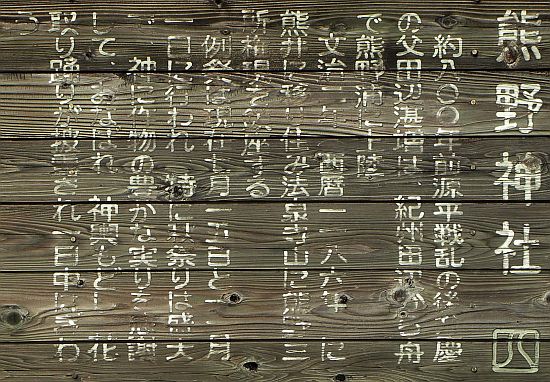 熊野神社
約八〇〇年前源平戦乱の後弁慶
の父田辺湛増は、紀州田辺から舟
で熊野浦に上陸
文治二年 西暦一一八六年 に
熊井に移り住み法泉寺山に熊野三
所権現を
例祭は 十月一五日と 月
一日に行われ 特に秋祭りは盛大
で 神に作物の豊かな実りを感謝
して、 神輿 花
取り踊りが披露され一日中にぎわ
う